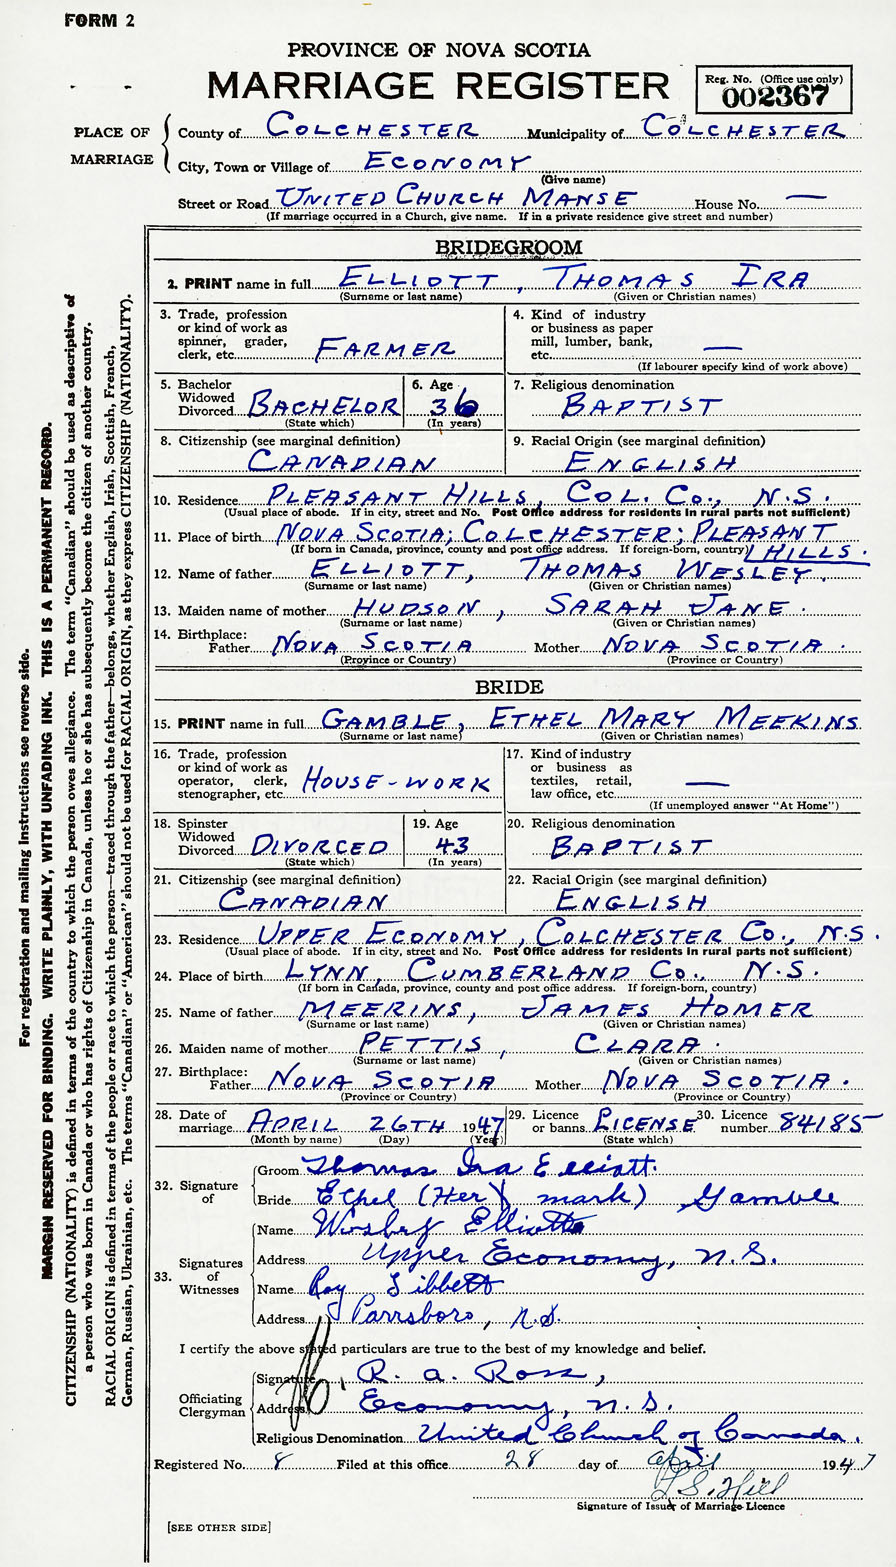 FORM 2
PROVINCE OF NOVA SCOTIA
MARRIAGE REGISTER
Reg. No. (Office use only)
002367
PLACE OF MARRIAGE
County of COLCHESTER Municipality of COLCHESTER
City, Town or Village of ECONOMY
(Give name)
Street or Road UNITED CHURCH MANSE House No. —
(If marriage occurred in a Church, give name. If in a private residence give street and number)
BRIDEGROOM
2. PRINT name in full ELLIOTT, THOMAS IRA
(Surname or last name) (Given or Christian names)
3. Trade, profession or kind of work as spinner, grader, clerk, etc. FARMER
4. Kind of industry or business as paper mill, lumber, bank, etc. —
(If labourer specify kind of work above)
5. Bachelor Widowed Divorced BACHELOR
(State which)
6. Age 36
(In years)
7. Religious denomination
BAPTIST
8. Citizenship (see marginal definition)
CANADIAN
9. Racial Origin (see marginal definition)
ENGLISH
10. Residence PLEASANT HILLS, COL. CO., N.S.
(Usual place of abode. If in city, street and No. Post Office address for residents in rural parts not sufficient)
11. Place of birth NOVA SCOTIA; COLCHESTER; PLEASANT
(If born in Canada, province, county and post office address. If foreign-born, country) HILLS.
12. Name of father ELLIOTT, THOMAS WESLEY.
(Surname or last name) (Given or Christian names)
13. Maiden name of mother HUDSON, SARAH JANE.
(Surname or last name) (Given or Christian names)
14. Birthplace:
Father NOVA SCOTIA Mother NOVA SCOTIA.
(Province or Country) (Province or Country)
BRIDE
15. PRINT name in full GAMBLE, ETHEL MARY MEEKINS
(Surname or last name) (Given or Christian names)
16. Trade, profession or kind of work as operator, clerk, stenographer, etc. HOUSE-WORK
17. Kind of industry or business as textiles, retail, law office, etc. —
(If unemployed answer "At Home")
18. Spinster Widowed Divorced DIVORCED
(State which)
19. Age 43
(In years)
20. Religious denomination
BAPTIST
21. Citizenship (see marginal definition)
CANADIAN
22. Racial Origin (see marginal definition)
ENGLISH
23. Residence UPPER ECONOMY, COLCHESTER CO., N.S.
(Usual place of abode. If in city, street and No. Post Office address for residents in rural parts not sufficient)
24. Place of birth LYNN, CUMBERLAND CO., N.S.
(If born in Canada, province, county and post office address. If foreign-born, country)
25. Name of father MEEKINS, JAMES HOMER
(Surname or last name) (Given or Christian names)
26. Maiden name of mother PETTIS, CLARA.
(Surname or last name) (Given or Christian names)
27. Birthplace:
Father NOVA SCOTIA Mother NOVA SCOTIA.
(Province or Country) (Province or Country)
28. Date of marriage APRIL 26TH 1947
(Month by name) (Day) (Year)
29. Licence or banns LICENSE
(State which)
30. Licence number 84185
32. Signature of
Groom Thomas Ira Elliott.
Bride Ethel (Her X mark) Gamble
33. Signatures of Witnesses
Name Elliott
Address Upper Economy, N.S.
Name Roy Tibbett
Address Parrsboro, N.S.
I certify the above stated particulars are true to the best of my knowledge and belief.
Officiating Clergyman
Signature R. A. Ross,
Address Economy, N.S.
Religious Denomination United Church of Canada.
Registered No. 8 Filed at this office 28 day of April 1947
L S Hill
Signature of Issuer of Marriage Licence
[SEE OTHER SIDE]
For registration and mailing instructions see reverse side.
MARGIN RESERVED FOR BINDING. WRITE PLAINLY, WITH UNFADING INK. THIS IS A PERMANENT RECORD.
CITIZENSHIP (NATIONALITY) is defined in terms of the country to which the person owes allegiance. The term "Canadian" should be used as descriptive of
a person who was born in Canada or who has rights of Citizenship in Canada, unless he or she has subsequently become the citizen of another country.
RACIAL ORIGIN is defined in terms of the people or race to which the person—traced through the father—belongs, whether English, Irish, Scottish, French,
German, Russian, Ukrainian, etc. The terms "Canadian" or "American" should not be used for RACIAL ORIGIN, as they express CITIZENSHIP (NATIONALITY).